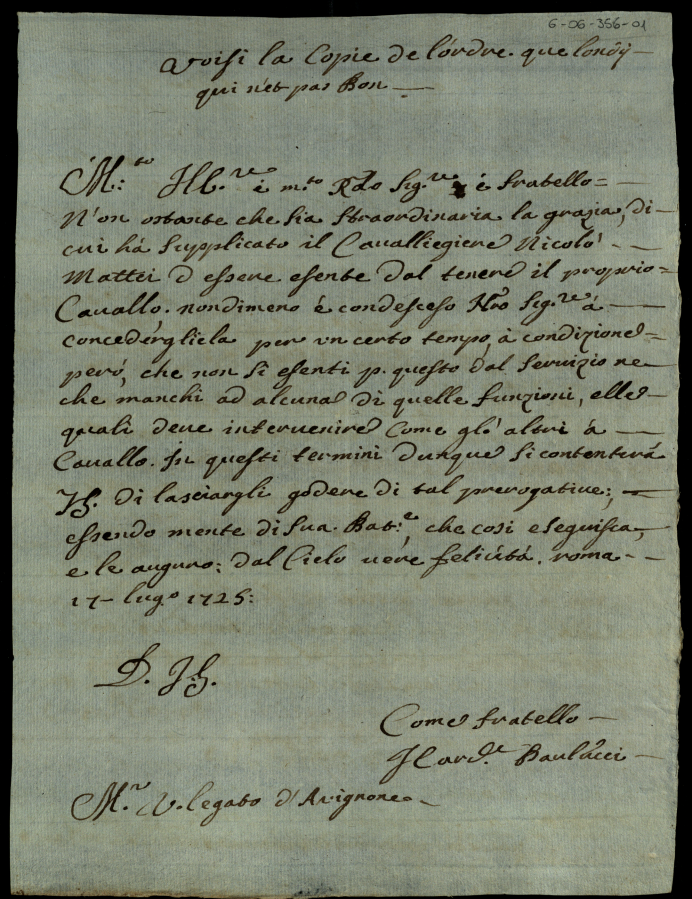 6-06-356-01
Voisi la Copie de l'ordre que londij
qui n'et pas Bon
M:to Ill.re é m.to Rdo Sig.re é fratello=
N'on ostante che sia straordinaria la grazia, di
cui há supplicato il Cavalliegiere Nicoló
Mattei d essere esente dal tenere il proprio=
Cavallo. nondimeno é condesceso Nro Sig.re á
concedérgliela per un certo tempo, á condizione=
peró, che non si esenti p. questo dal servizio ne
che manchi ad alcuna di quelle funzioni, elle
quali deve intervenire Come gl'altri á
Cavallo. In questi termini dunque si contenterá
di lasciargli godere di tal prerogative;
essendo mente di sua Bat:e, che cosi eseguisca,
e le auguro: dal Cielo vere felicitá. roma
17 lug.o 1725:
Come fratello
Il Card.e Paulucci
M.r V. legato d'Avignone